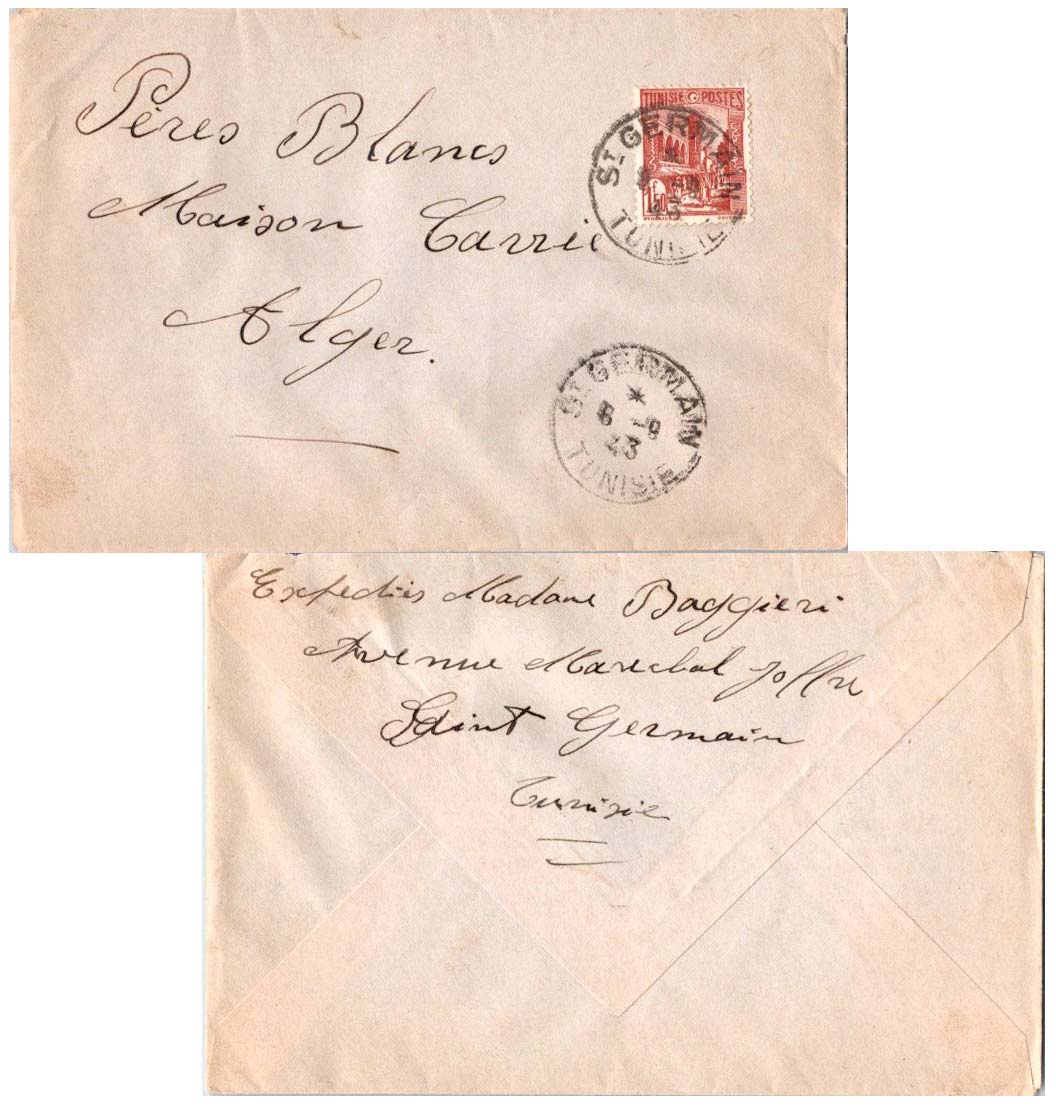 Pères Blancs
Maison Carrie
Alger.
TUNISIE POSTES
1F50
ST GERMAIN
8 -9
43
TUNISIE
ST GERMAIN
*
8 -9
43
TUNISIE
Expediés Madame Baggieri
Avenue Marechal Joffre
Saint Germain
Tunisie